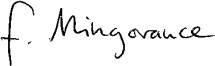 f. Mingorance